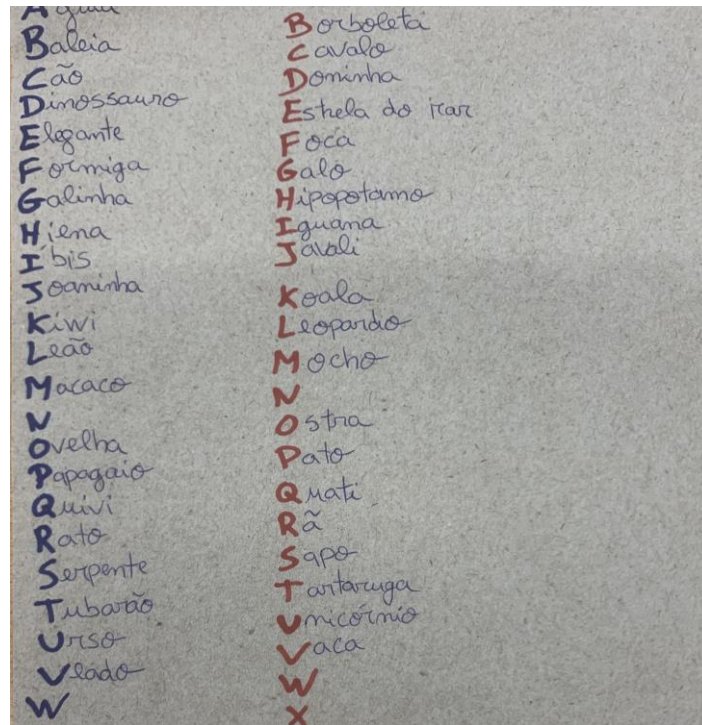 Águia
Baleia
Cão
Dinossauro
Elegante
Formiga
Galinha
Hiena
Íbis
Joaninha
Kiwi
Leão
Macaco
N
Ovelha
Papagaio
Quivi
Rato
Serpente
Tubarão
Urso
Veado
W
Borboleta
Cavalo
Doninha
Estrela do mar
Foca
Galo
Hipopotamo
Iguana
Javali
Koala
Leopardo
Mocho
N
Ostra
Pato
Quati
Rã
Sapo
Tartaruga
Unicórnio
Vaca
W
X